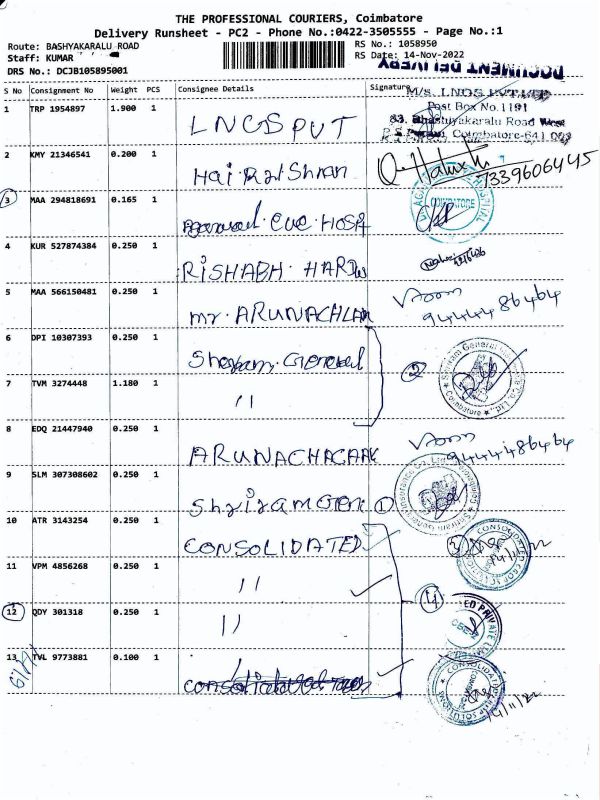 THE PROFESSIONAL COURIERS, Coimbatore
Delivery Runsheet - PC2 - Phone No.:0422-3505555 - Page No.:1
Route: BASHYAKARALU ROAD
RS No.: 1058950
Staff: KUMAR
RS Date: 14-Nov-2022
DRS No.: DCJB105895001
DOCUMENT DELIVERY
S No Consignment No Weight PCS Consignee Details Signature
M/s. LNGS PVT LTD
Post Box No.1191
83, Bhashyakaralu Road West
Coimbatore-641 002
1 TRP 1954897 1.900 1 LNGS PVT
2 KMY 21346541 0.200 1 Hai
7339606445
3 MAA 294818691 0.165 1 EYE HOSP
COIMBATORE
4 KUR 527874384 0.250 1 RISHABH HARDW
5 MAA 566150481 0.250 1 mr. ARUNACHLAM
9444486464
6 DPI 10307393 0.250 1 Shriram General
2
7 TVM 3274448 1.180 1 "
8 EDQ 21447940 0.250 1 ARUNACHALAM
9444486464
9 SLM 307308602 0.250 1 Shriram Gene 1
10 ATR 3143254 0.250 1 CONSOLIDATED
3
14/11/22
11 VPM 4856268 0.250 1 "
12 QDY 301318 0.250 1 "
4
13 TVL 9773881 0.100 1
14/11/22